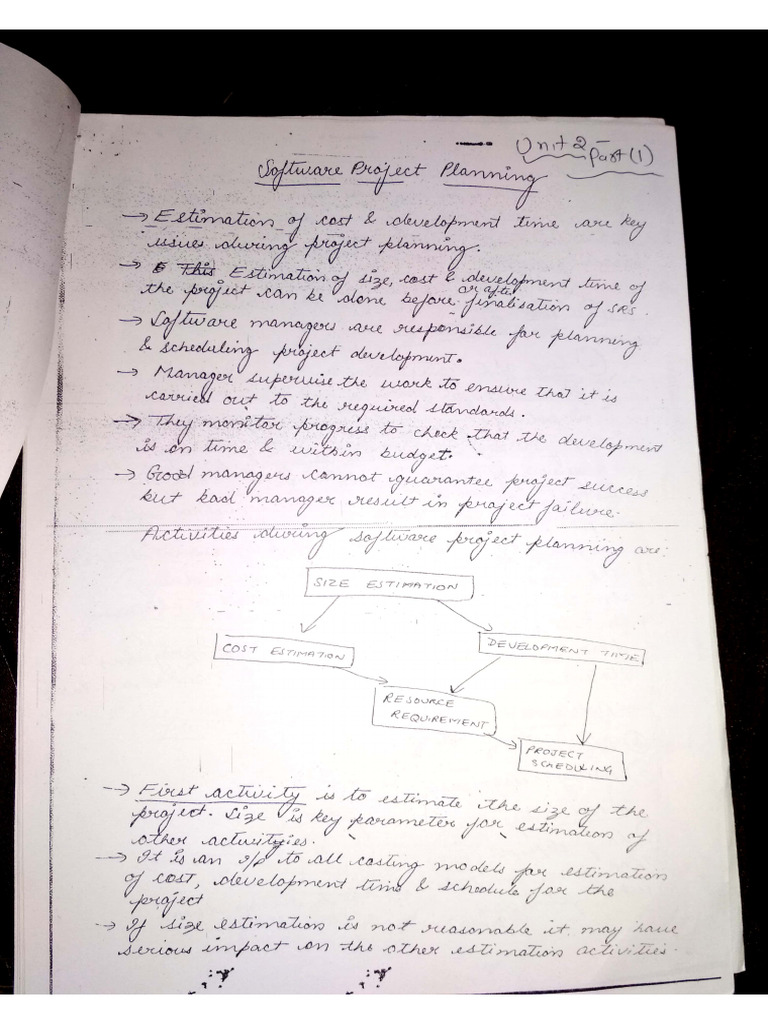 Unit 2 -
Part (1)
Software Project Planning
→ Estimation of cost & development time are key
issues during project planning.
→ This Estimation of size, cost & development time of
the project can be done before or after finalisation of SRS.
→ Software managers are responsible for planning
& scheduling project development.
→ Manager supervise the work to ensure that it is
carried out to the required standards.
→ They monitor progress to check that the development
is on time & within budget.
→ Good managers cannot guarantee project success
but bad manager result in project failure.
Activities during software project planning are:
SIZE ESTIMATION
COST ESTIMATION
DEVELOPMENT TIME
RESOURCE
REQUIREMENT
PROJECT
SCHEDULING
→ First activity is to estimate the size of the
project. Size is key parameter for estimation of
other activities.
→ It is an i/p to all costing models for estimation
of cost, development time & schedule for the
project
→ If size estimation is not reasonable it may have
serious impact on the other estimation activities.